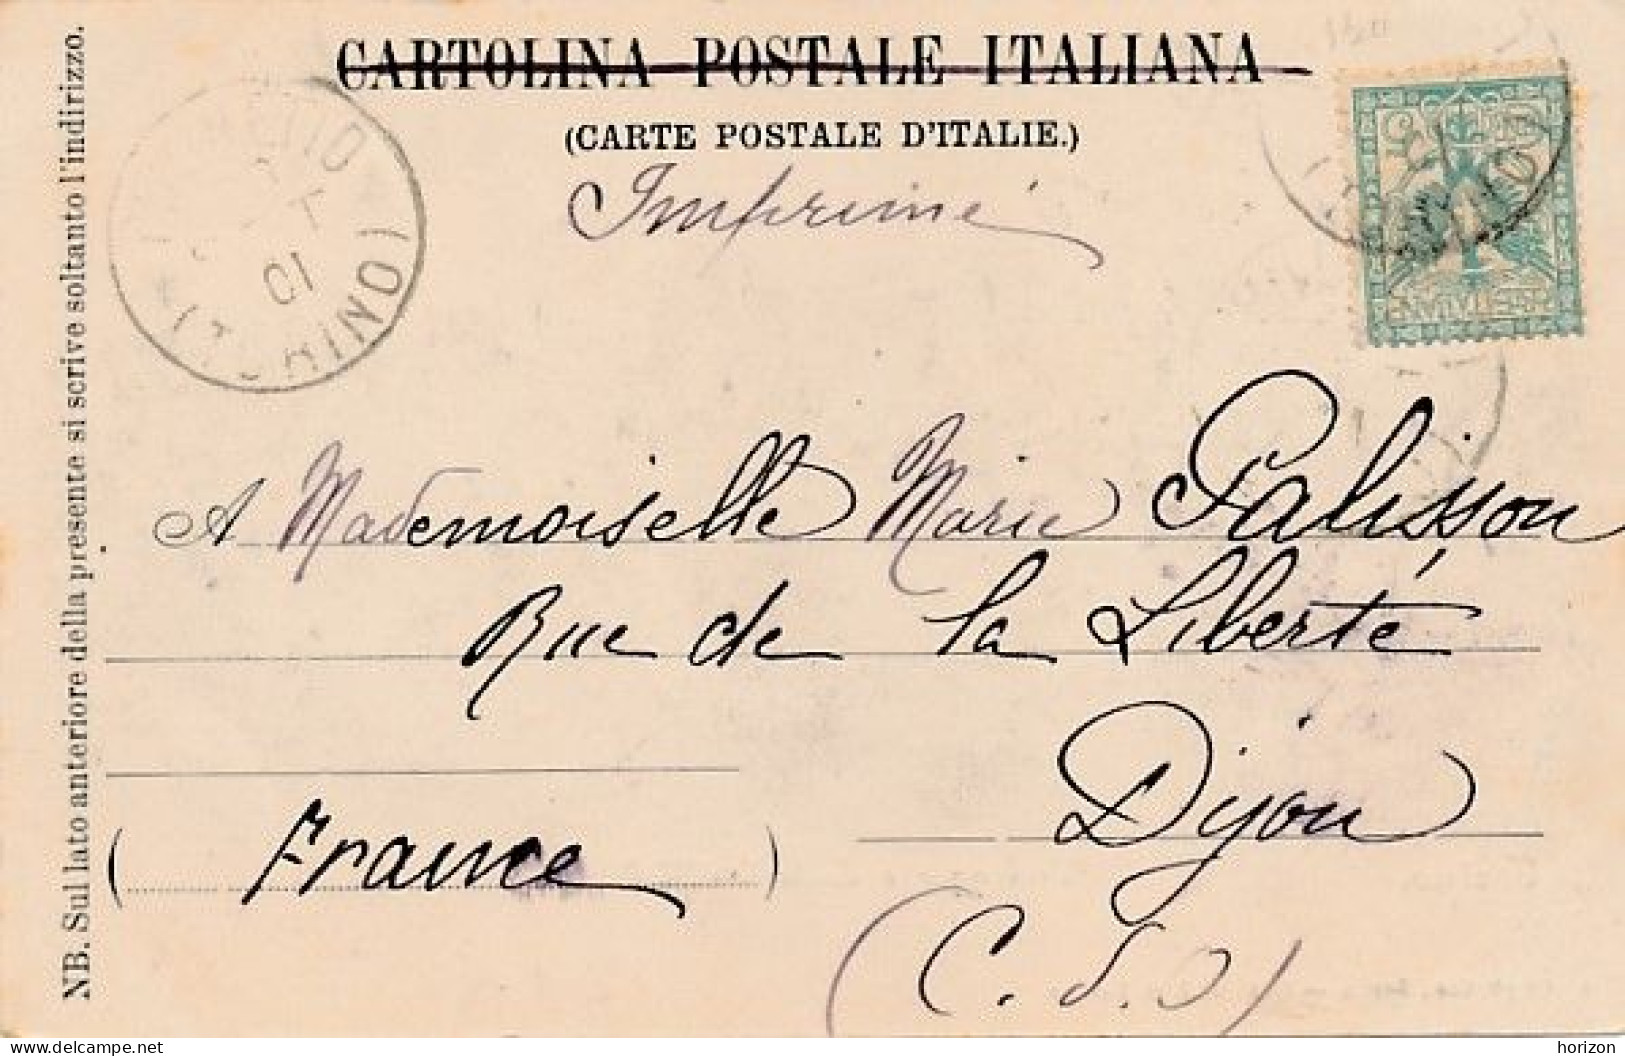 CARTOLINA POSTALE ITALIANA
(CARTE POSTALE D'ITALIE.)
Imprimé
(TORINO)
01
5
A Mademoiselle Marie Palisson
Rue de la Liberté
Dijon
(France)
(C. d. O)
NB. Sul lato anteriore della presente si scrive soltanto l'indirizzo.
delcampe.net
horizon